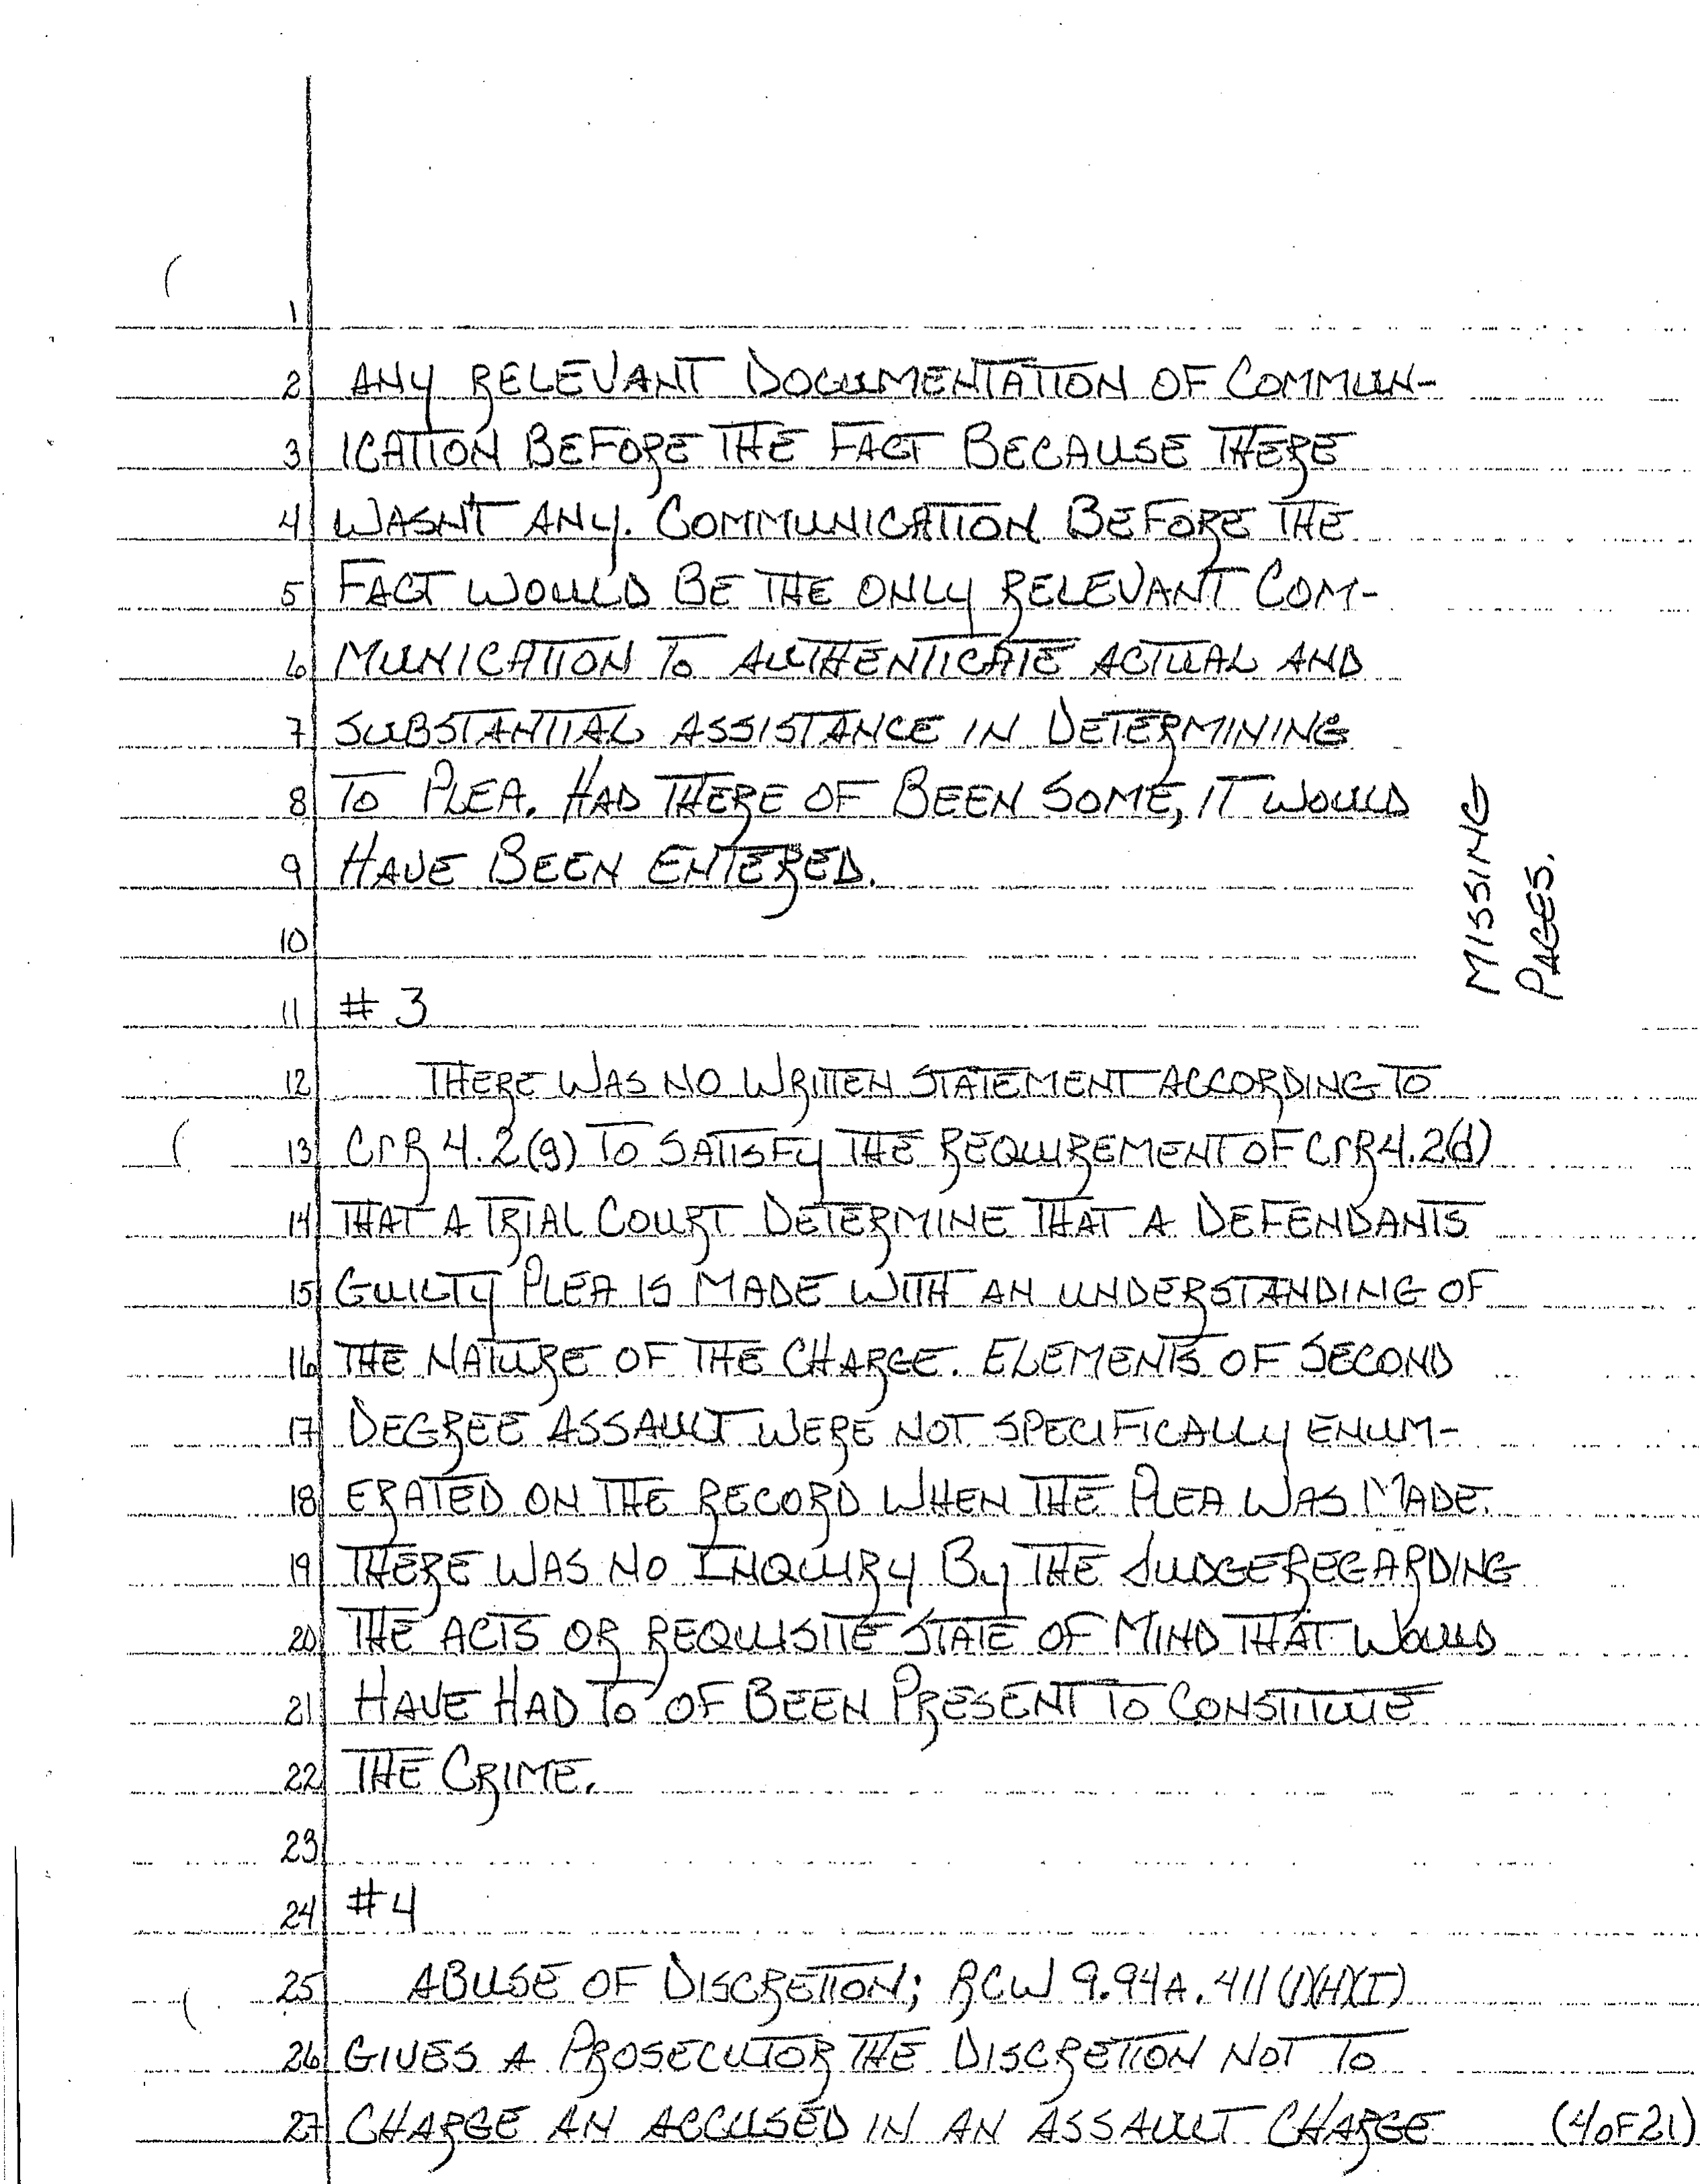 1
2 ANY RELEVANT DOCUMENTATION OF COMMUN-
3 ICATION BEFORE THE FACT BECAUSE THERE
4 WASN'T ANY. COMMUNICATION BEFORE THE
5 FACT WOULD BE THE ONLY RELEVANT COM-
6 MUNICATION TO AUTHENTICATE ACTUAL AND
7 SUBSTANTIAL ASSISTANCE IN DETERMINING
8 TO PLEA. HAD THERE OF BEEN SOME, IT WOULD
9 HAVE BEEN ENTERED.
MISSING
PAGES.
10
11 # 3
12 THERE WAS NO WRITTEN STATEMENT ACCORDING TO
13 CrR 4.2(g) TO SATISFY THE REQUIREMENT OF CrR 4.2(d)
14 THAT A TRIAL COURT DETERMINE THAT A DEFENDANTS
15 GUILTY PLEA IS MADE WITH AN UNDERSTANDING OF
16 THE NATURE OF THE CHARGE. ELEMENTS OF SECOND
17 DEGREE ASSAULT WERE NOT SPECIFICALLY ENUM-
18 ERATED ON THE RECORD WHEN THE PLEA WAS MADE.
19 THERE WAS NO INQUIRY BY THE JUDGE REGARDING
20 THE ACTS OR REQUISITE STATE OF MIND THAT WOULD
21 HAVE HAD TO OF BEEN PRESENT TO CONSTITUTE
22 THE CRIME.
23
24 #4
25 ABUSE OF DISCRETION; RCW 9.94A.411(1)(H)(I)
26 GIVES A PROSECUTOR THE DISCRETION NOT TO
27 CHARGE AN ACCUSED IN AN ASSAULT CHARGE
(4 OF 21)